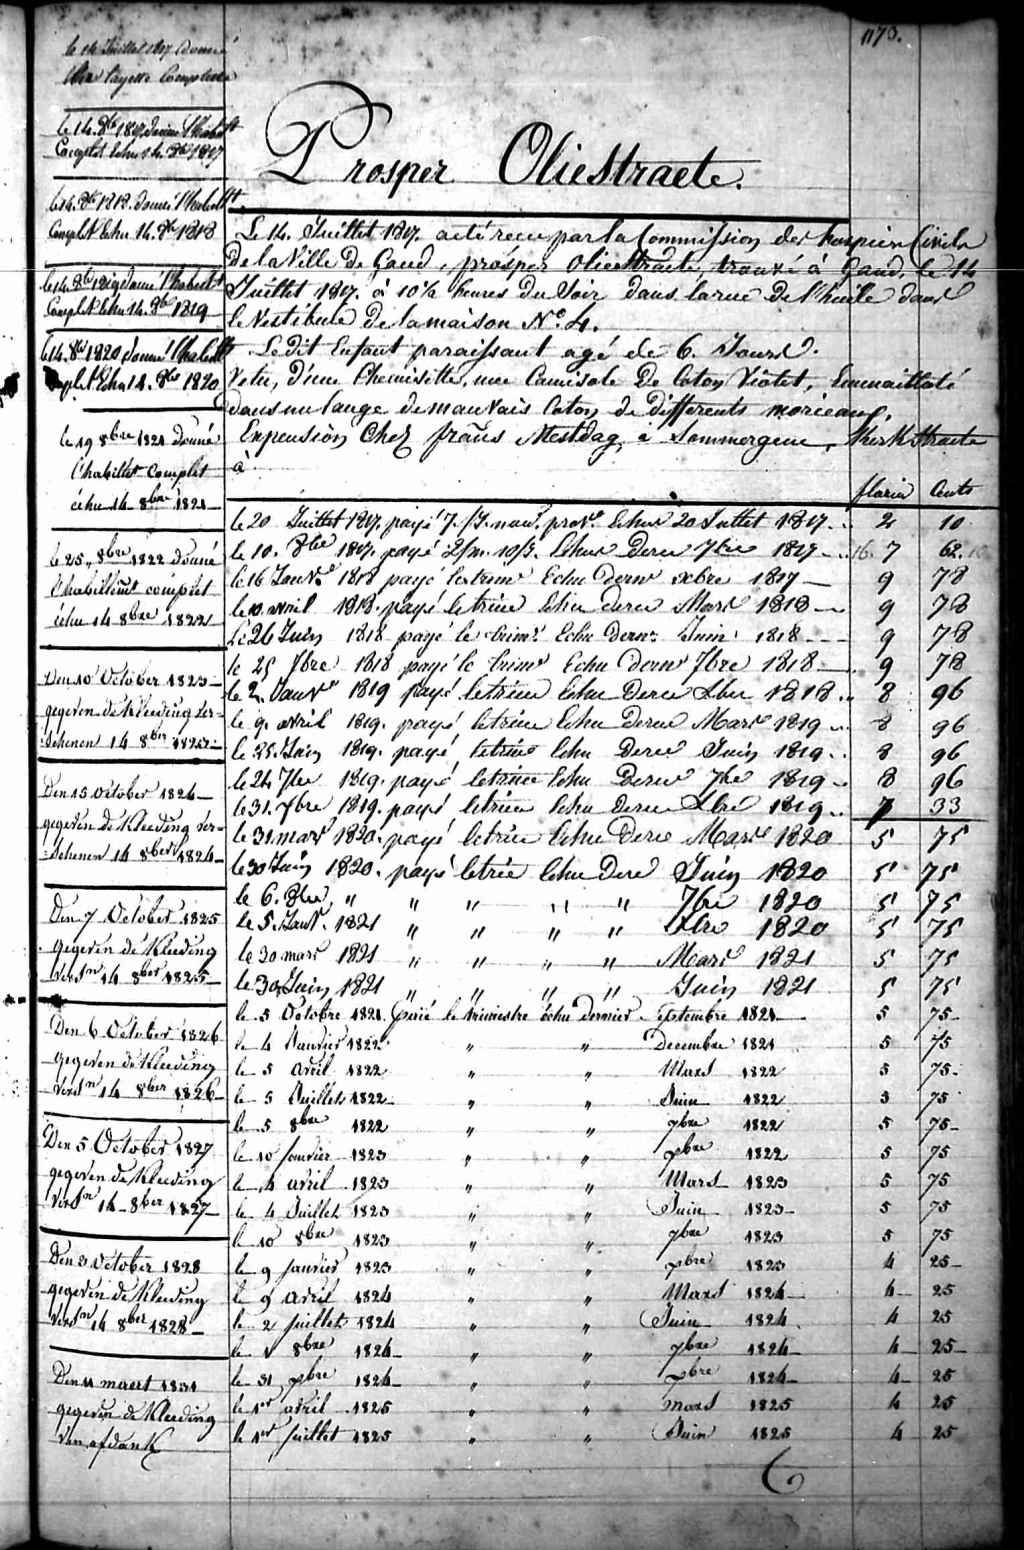 1178.
le 14 Juillet 1817 donné
Une layette Complette
le 14. 8bre 1817 donné l'habillt
Complet Echu 14. 8bre 1817
le 14. 8bre 1818. donné l'habillt
Complet Echu 14. 8bre 1818
le 14. 8bre 1819 donné l'habillt
Complet Echu 14. 8bre 1819
le 14. 8bre 1820 donné l'habillt
Complet Echu 14. 8bre 1820
le 19 8bre 1821 donné
l'habillet complet
échu 14 8bre 1821
le 25 8bre 1822 donné
l'habillemt complet
échu 14 8bre 1822
Den 10 October 1823
gegeven de Kleeding ver-
schenen 14 8ber 1823
Den 15 October 1824
gegeven de Kleeding ver-
schenen 14 8ber 1824
Den 7 October 1825
gegeven de Kleeding
versn 14 8ber 1825
Den 6 October 1826
gegeven de Kleeding
versn 14 8ber 1826
Den 5 October 1827
gegeven de Kleeding
versn 14 8ber 1827
Den 3 October 1828
gegeven de Kleeding
versn 14 8ber 1828
Den 11 maert 1831
gegeven de Kleeding
van afdank
Prosper Oliestraete.
Le 14. Juillet 1817. a été recu par la Commission des hospices Civils
De la Ville De Gand, prosper oliestraete, trouvé à Gand, le 14
Juillet 1817. à 10½ heures Du Soir dans la rue De l'huile dans
le Vestibule De la maison No. 4.
Le dit Enfant paraissant agé de 6. Jours.
Vetu, d'une Chemisette, une Camisole De Coton Violet, Emmailloté
dans un lange de mauvais Coton de differents morceaux.
En pension Chez frans Mestdag, à Sommergem, Kerkstraete
à
florin Cents
le 20 Juillet 1817. payé Echus 20 Juillet 1817. 2 10
le 10. 8bre 1817. payé Echus Derer 7bre 1817 7 62
le 16 Janvr 1818 payé le trime Echu dernr xbre 1817 9 78
le 10 avril 1818. payé le trime Echu derer Mars 1818 9 78
Le 26 Juin 1818 payé le trime Echu dernr Juin 1818 9 78
le 25 7bre 1818 payé le trime Echu dernr 7bre 1818 9 78
le 2 Janvr 1819 payé le trime Echu derer Xbre 1818 8 96
le 9. avril 1819. payé le trime Echu derer Mars 1819 8 96
le 25. Juin 1819. payé le trime Echu derer Juin 1819 8 96
le 24 7bre 1819. payé le trime Echu derer 7bre 1819 8 96
le 31. xbre 1819. payé le trime Echu derer Xbre 1819 7 33
le 31. mars 1820. payé le trime Echu Derer Mars 1820 5 75
le 30 Juin 1820. payé le trime Echu Derer Juin 1820 5 75
le 6. 8bre " " " " " 7bre 1820 5 75
le 5. Janvr. 1821 " " " " Xbre 1820 5 75
le 30 mars 1821 " " " " Mars 1821 5 75
le 30 Juin 1821 " " " " Juin 1821 5 75
le 5 Octobre 1821. Païé le trimestre échu dernier Septembre 1821 5 75
le 4 Janvier 1822 " " Decembre 1821 5 75
le 5 avril 1822 " " Mars 1822 5 75
le 5 Juillet 1822 " " Juin 1822 5 75
le 5 8bre 1822 " " 7bre 1822 5 75
le 10 janvier 1823 " " xbre 1822 5 75
le 4 avril 1823 " " Mars 1823 5 75
le 4 Juillet 1823 " " Juin 1823 5 75
le 10 8bre 1823 " " 7bre 1823 5 75
le 9 janvier 1823 " " xbre 1823 4 25
le 9 avril 1824 " " Mars 1824 4 25
le 2 juillet 1824 " " Juin 1824 4 25
le 1 8bre 1824 " " 7bre 1824 4 25
le 31 xbre 1824 " " xbre 1824 4 25
le 1er avril 1825 " " mars 1825 4 25
le 1er juillet 1825 " " Juin 1825 4 25